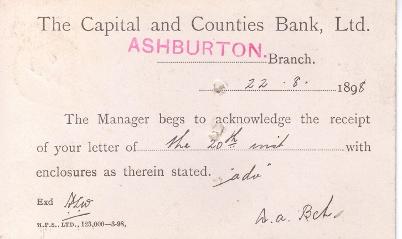 The Capital and Counties Bank, Ltd.
ASHBURTON. Branch.
22 . 8. 1898
The Manager begs to acknowledge the receipt
of your letter of the 20th inst with
enclosures as therein stated. "adv"
Exd
H.P.S., LTD., 125,000—3-98.